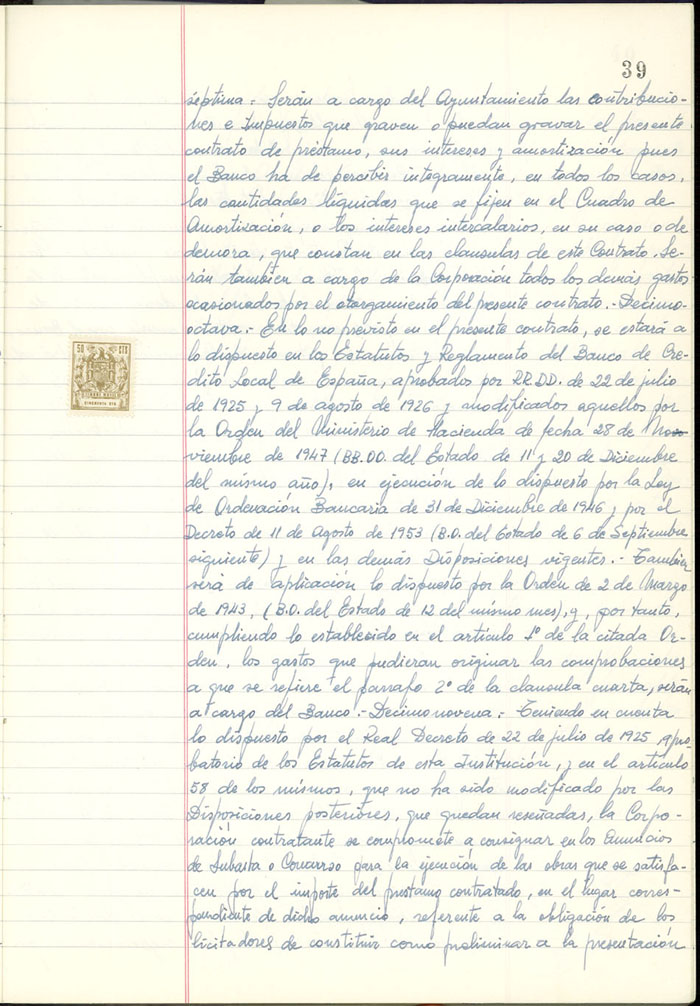 39
séptima: Serán a cargo del Ayuntamiento las contribucio-
nes e Impuestos que graven o puedan gravar el presente
contrato de préstamo, sus intereses y amortización pues
el Banco ha de percibir integramente, en todos los casos,
las cantidades líquidas que se fijen en el Cuadro de
Amortización, o los intereses intercalarios, en su caso o de
demora, que constan en las clausulas de este Contrato. Se-
rán tambien a cargo de la Corporación todos los demás gastos
ocasionados por el otorgamiento del presente contrato.- Decimo-
octava.- En lo no previsto en el presente contrato, se estará a
lo dispuesto en los Estatutos y Reglamento del Banco de Cre-
dito Local de España, aprobados por RR.DD. de 22 de julio
de 1925 y 9 de agosto de 1926 y modificados aquellos por
la Orden del Ministerio de Hacienda de fecha 28 de No
viembre de 1947 (BB.OO. del Estado de 11 y 20 de Diciembre
del mismo año), en ejecución de lo dispuesto por la Ley
de Ordenación Bancaria de 31 de Diciembre de 1946 y por el
Decreto de 11 de Agosto de 1953 (B.O. del Estado de 6 de Septiembre
siguiente) y en las demás Disposiciones vigentes.- Tambien
será de aplicación lo dispuesto por la Orden de 2 de Marzo
de 1943, (B.O. del Estado de 12 del mismo mes), y, por tanto,
cumpliendo lo establecido en el artículo 1º de la citada Or-
den, los gastos que pudieran originar las comprobaciones
a que se refiere el parrafo 2º de la clausula cuarta, serán
a cargo del Banco.- Decimonovena: Teniendo en cuenta
lo dispuesto por el Real Decreto de 22 de julio de 1925, apro
batorio de los Estatutos de esta Institución, y en el artículo
58 de los mismos, que no ha sido modificado por las
Disposiciones posteriores, que quedan reseñadas, la Corpo-
ración contratante se compromete a consignar en los Anuncios
de Subasta o Concurso para la ejecución de las obras que se satisfa-
cen por el importe del prestamo contratado, en el lugar corres-
pondiente de dicho anuncio, referente a la obligación de los
licitadores de constituir como preliminar a la presentación
50 CTS
CINCUENTA CTS